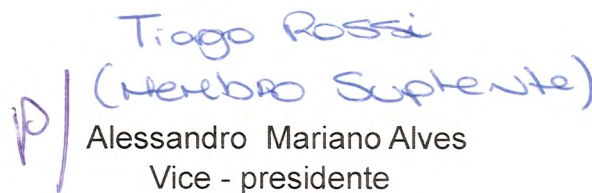 Tiago Rossi
(Membro Suplente)
p/ Alessandro Mariano Alves
Vice - presidente